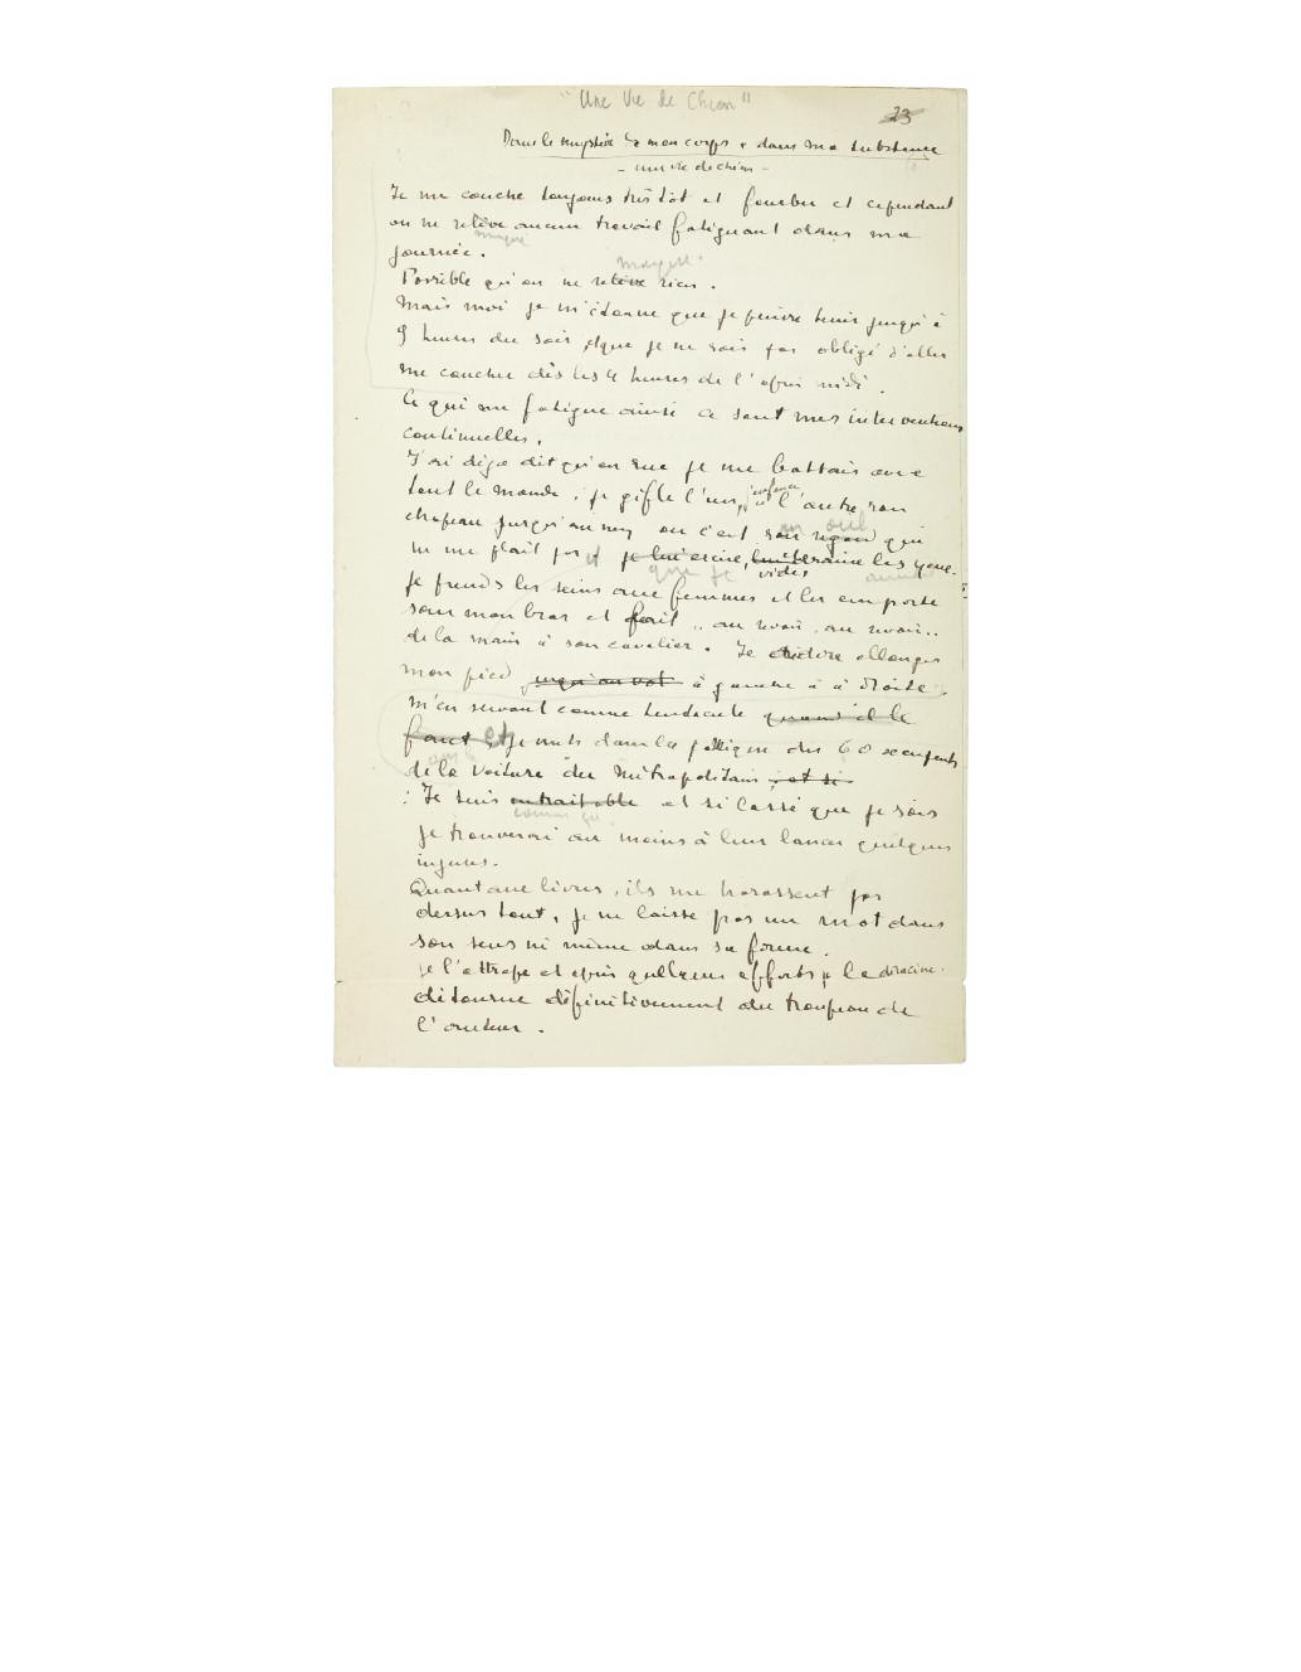 "Une Vie de Chien"
23
Dans le mystère de mon corps & dans ma substance
- une vie de chien -
Je me couche toujours très tôt et fourbu et cependant
on ne relève aucun travail fatiguant dans ma
journée.
Possible qu'on ne relève rien.
Mais moi je m'étonne que je puisse tenir jusqu'à
9 heures du soir, & que je ne sois pas obligé d'aller
me coucher dès les 4 heures de l'après midi.
Ce qui me fatigue ainsi ce sont mes interventions
continuelles.
J'ai déjà dit qu'en rue je me battais avec
tout le monde ; je gifle l'un, j'enfonce à l'autre son
chapeau jusqu'au nez ou c'est son regard qui
un œil
ne me plaît pas et je lui crève, les yeux.
que je vide,
je prends les seins aux femmes et les emporte
sous mon bras et fait .. au revoir, au revoir..
de la main à son cavalier. Je allonge
mon pied jusqu'au à gauche à à droite,
m'en servant comme tentacule quand il le
faut et je mets dans la pattique des 60 occupants
de la voiture du Métropolitain ; et si
: Je suis intraitable et si cassé que je sois
je trouverai au moins à leur lancer quelques
injures.
Quant aux livres, ils me harassent par
dessus tout, je ne laisse pas un mot dans
son sens ni même dans sa forme.
je l'attrape et après quelques efforts je le déracine.
détourne définitivement du troupeau de
l'auteur.